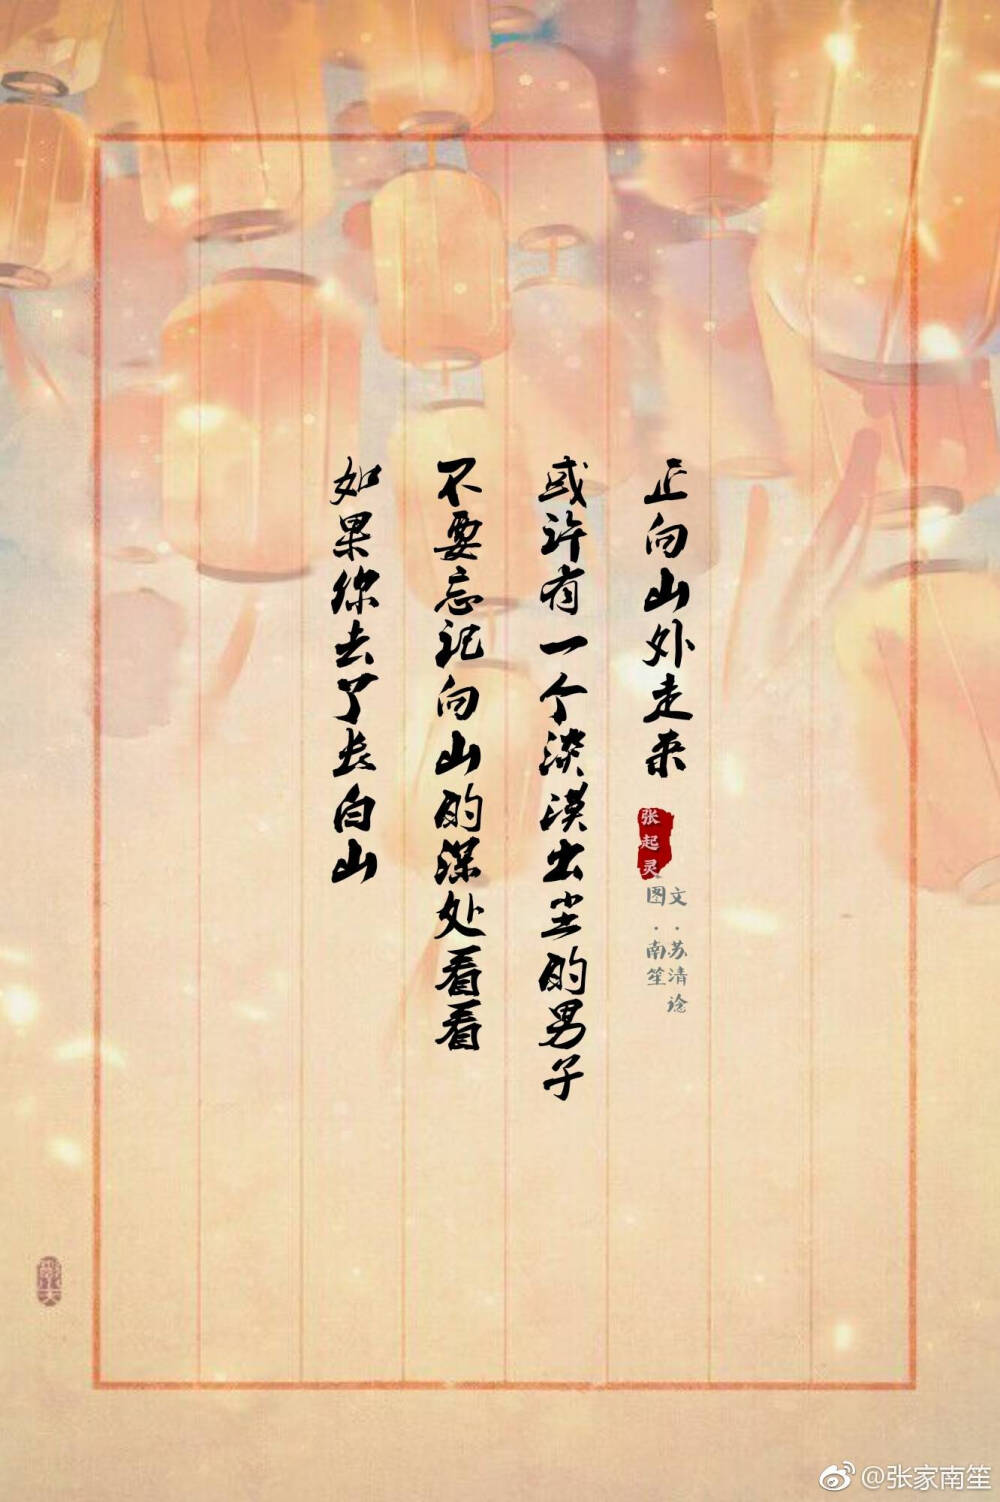 如果你去了长白山
不要忘记向山的深处看看
或许有一个淡漠出尘的男子
正向山外走来
张起灵
文·苏清谂
图·南笙
@张家南笙